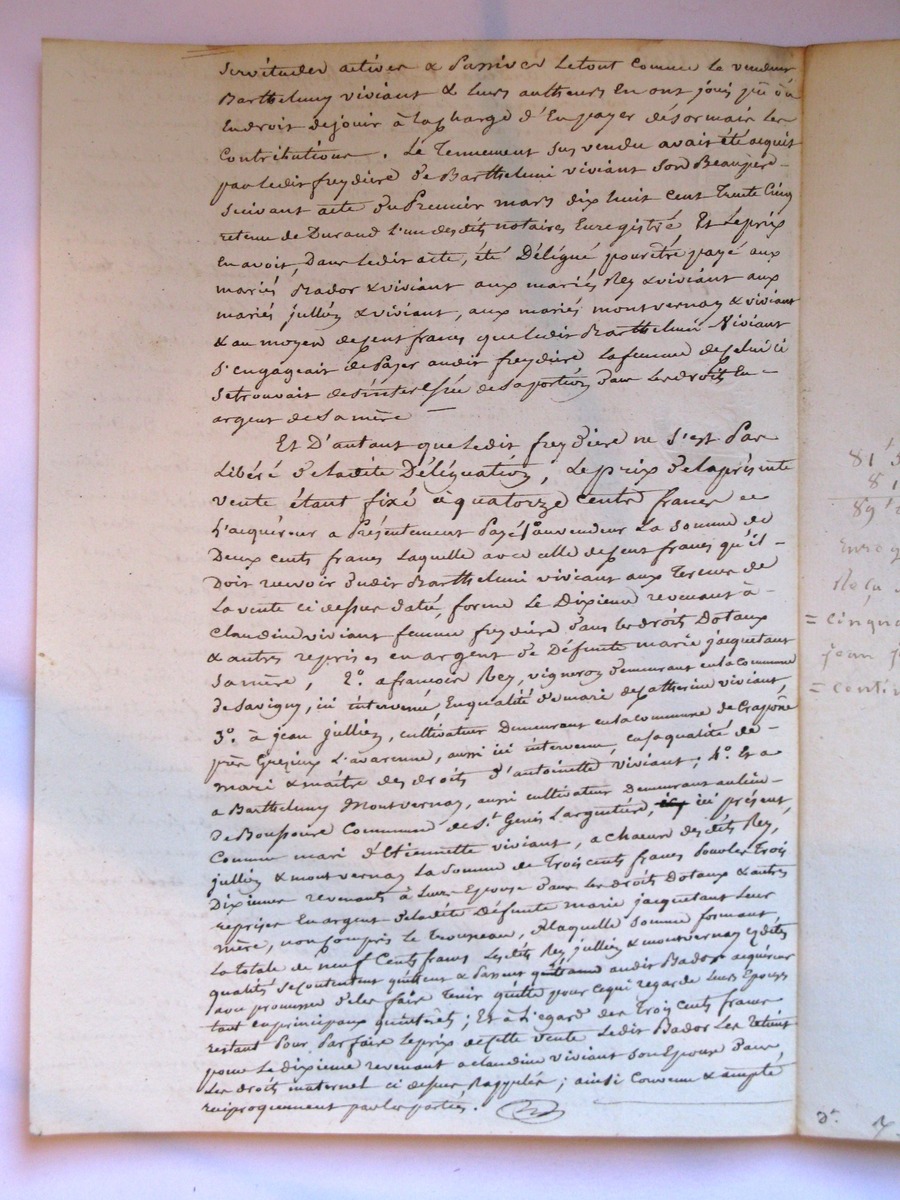 servitudes actives & passives Letout comme le vendeur
Barthelemy viviant & Leurs autheurs En ont joui
Endroit dejouir à Lacharge d'En payer désormais Les
Contributions. Le Tennement sus vendu avait été acquis
parledit freydiere de Barthelemi viviant son Beaupere
suivant acte du Premier mars dix huit cent Trente Cinq
retenu de Durand L'un desdits notaires Enregistré Et Leprix
En avoit, Dans Ledit acte, été Délégué pour être payé aux
mariés Bador & viviant aux mariés Rey & viviant aux
mariés jullien & viviant, aux mariés montvernay & viviant
& au moyen decent francs queledit Barthelemi Viviant
s'engageait de Payer audit freydiere Lafemme decelui ci
setrouvait desinteressée desaportion dans Les droits En
argent de Samère
Et D'autant queLedit freydiere ne s'est Pas
Libéré de Ladite Délégation, Leprix de Laprésente
vente étant fixé a quatorze cents francs
L'acquéreur a Présentement Payé 1° auvendeur La somme de
Deux cents francs Laquelle avec celle decent francs qu'il
Doit recevoir dudit Barthelemi viviant aux Termes de
Lavente ci dessus datée, forme Le Dixieme revenant à
Claudine viviant femme freydiere dans Les droits Dotaux
& autres reprises en argent de Défunte marie jacquetant
Samère, 2°. a francois Rey, vigneron demeurant en La commune
de Savigny, ici intervenu, En qualité de mari de Catherine viviant,
3°. à jean jullien, cultivateur Demeurant en La commune de Craponne
près Grezieux L'avarenne, aussi ici intervenu, en saqualité de
mari & maitre des droits d'antoinette viviant; 4°. Et a
a Barthelemy Montvernay, aussi cultivateur Demeurant au Lieu
de Commune de St. Genis Largentiere, ici présent,
Comme mari d'Etiennette viviant, a chacun desdits Rey,
jullien & montvernay La somme de Trois cents francs Pour Les Trois
Dixiemes revenants à Leurs Epouses dans Les droits Dotaux & autres
reprises En argent de Ladite Défunte marie jacquetant Leur
mère, non compris le Trousseau, Laquelle somme formant
La totale de neuf Cents francs Lesdits Rey jullien & montvernay
qualités secontentent quittent & Passent quittance audit Bador acquéreur
avec promesse de Les faire Tenir quitte pour cequi regarde Leurs Epouses
tant en principaux qu'intérêts; Et à L'egard des Trois Cents francs
restant Pour Parfaire Leprix de cette vente Ledit Bador Les retient
pour Le dixieme revenant a claudine viviant son Epouse Dans
Les droits maternel ci dessus Rappelés; ainsi Convenu & accepté
réciproquement par Les parties.
81
8
89
Enreg
Reçu
= cinqua
jean j
= centi